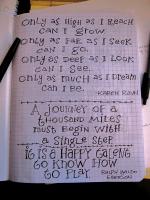 Only as High as I Reach
can I grow
Only as Far as I Seek
can I go.
Only as Deep as I Look
can I See.
Only as much as I Dream
can I Be.
- Karen Ravn
A journey of a
thousand miles
must Begin with
a single step
It is a Happy talent
to know How
to Play.
Ralph Waldo
Emerson